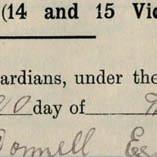 (14 and 15 Vic
ardians, under the
day of
Donnell Es